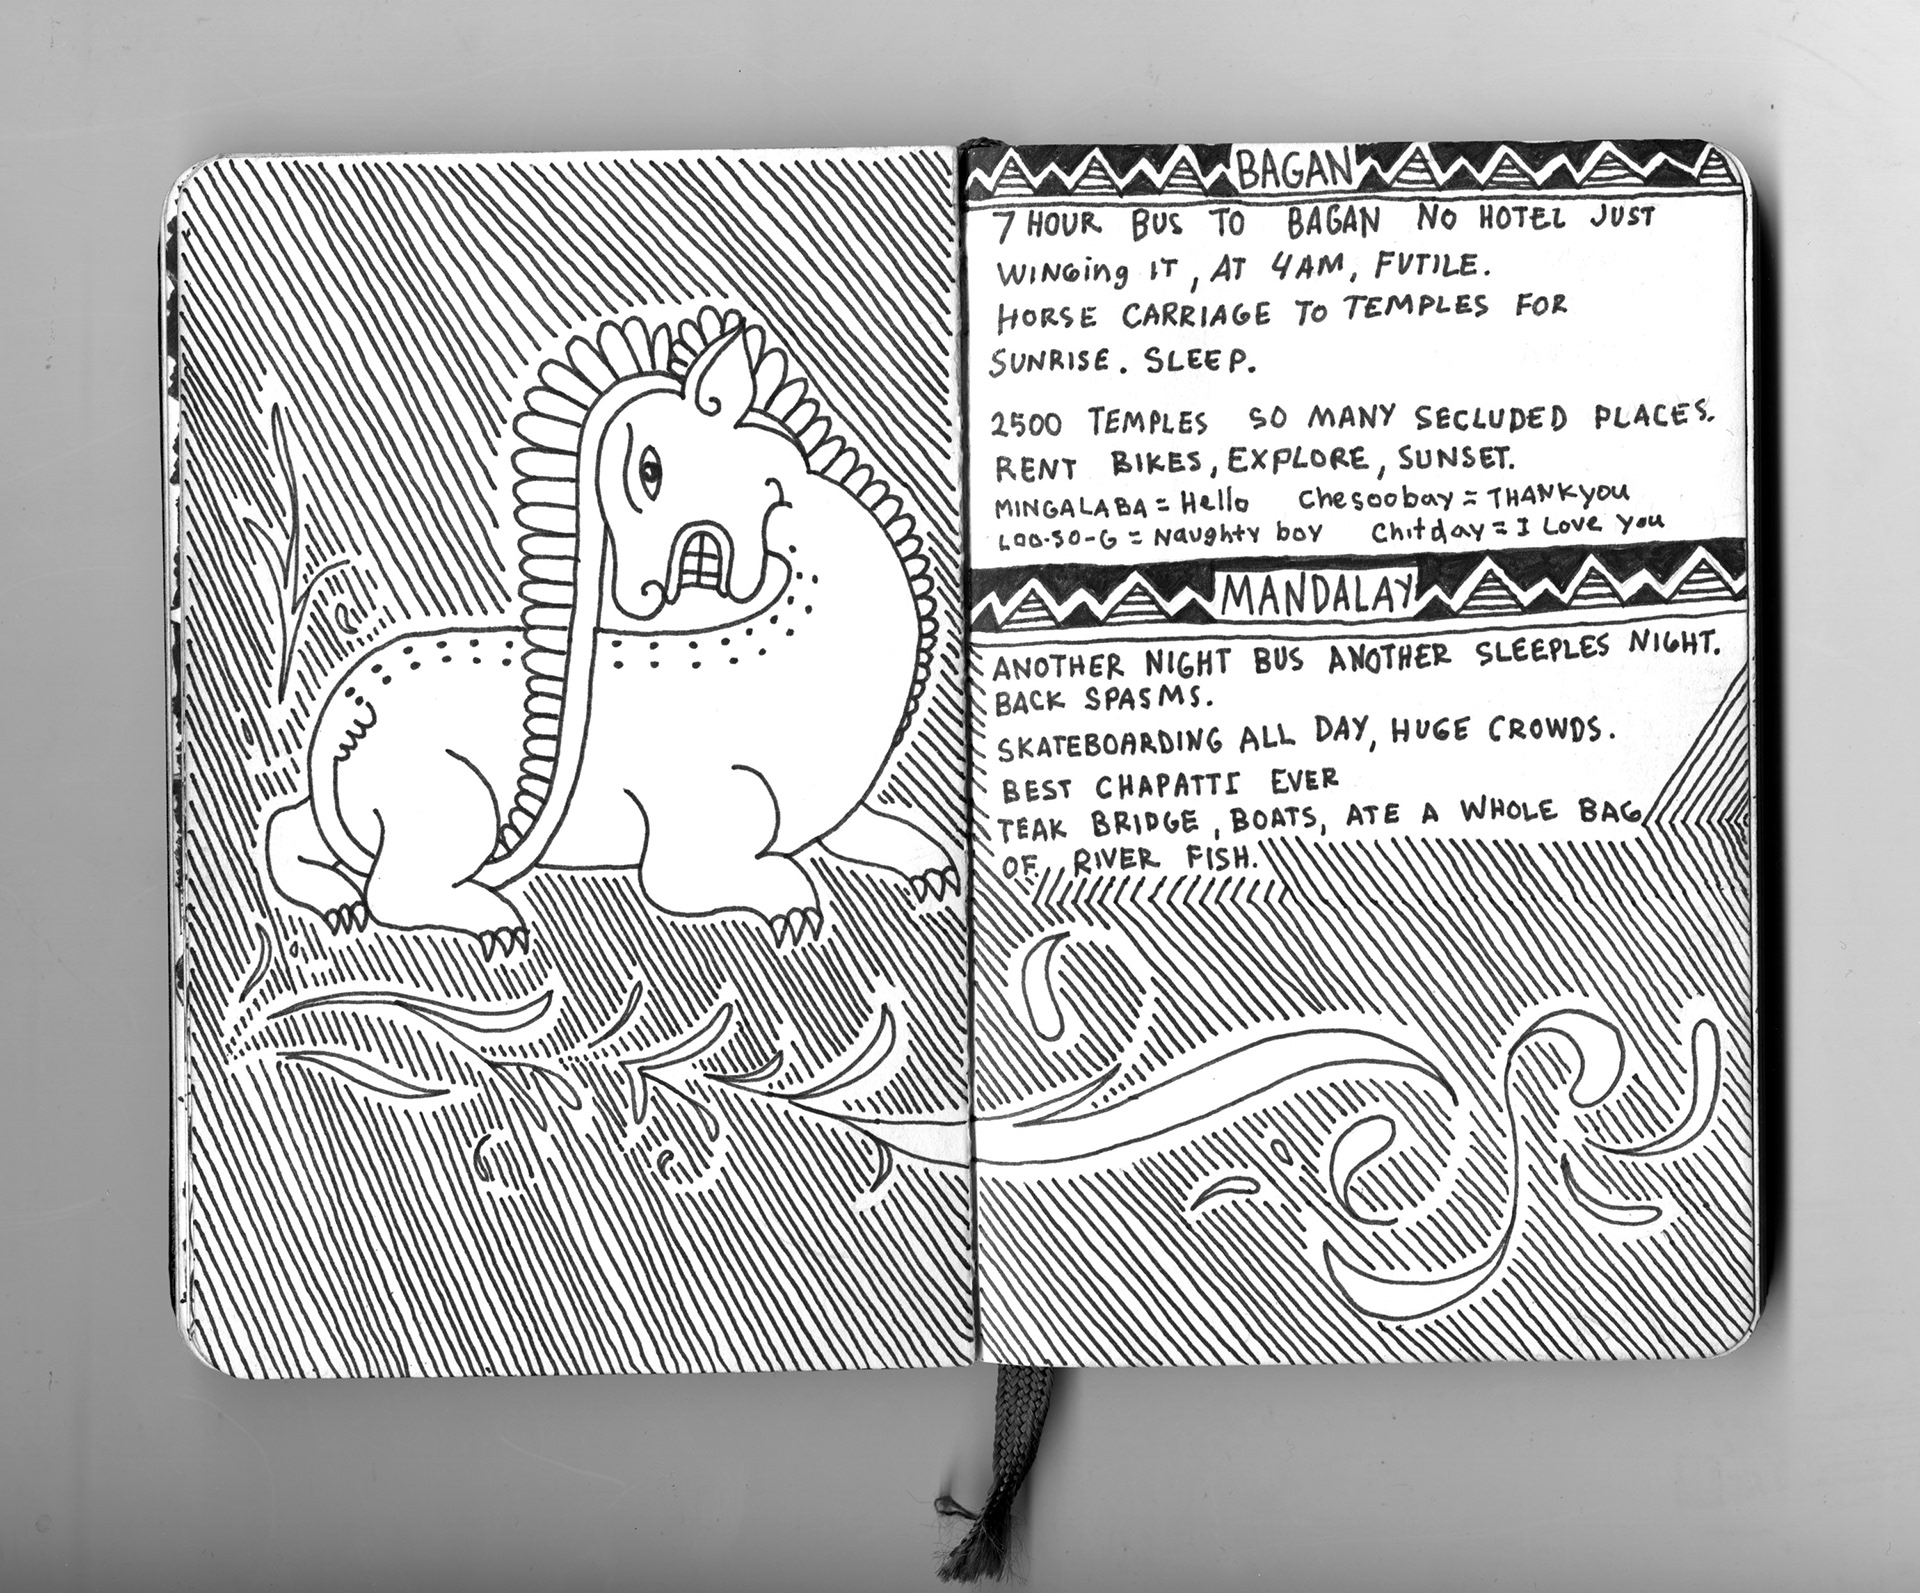 BAGAN
7 HOUR BUS TO BAGAN NO HOTEL JUST
WINGing IT, AT 4AM, FUTILE.
HORSE CARRIAGE TO TEMPLES FOR
SUNRISE. SLEEP.
2500 TEMPLES SO MANY SECLUDED PLACES.
RENT BIKES, EXPLORE, SUNSET.
MINGALABA = Hello Chesoobay = THANKyou
LOO-SO-G = Naughty boy Chitday = I Love you
MANDALAY
ANOTHER NIGHT BUS ANOTHER SLEEPLES NIGHT.
BACK SPASMS.
SKATEBOARDING ALL DAY, HUGE CROWDS.
BEST CHAPATTI EVER
TEAK BRIDGE, BOATS, ATE A WHOLE BAG
OF RIVER FISH.